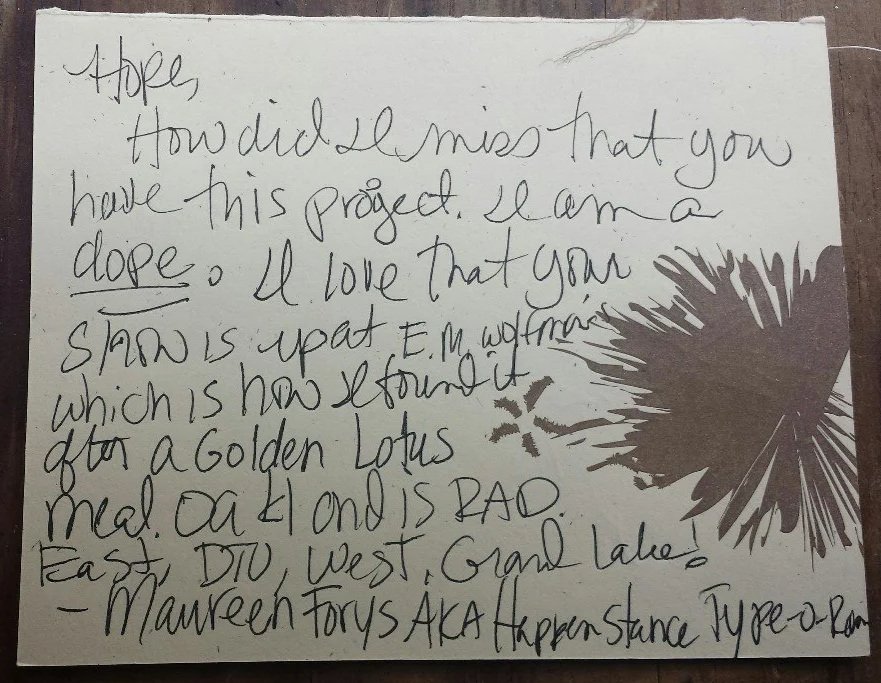 Hope,
How did I miss that you
have this project. I am a
dope. I love that your
show is up at E.M. Wolfman's
which is how I found it
after a Golden Lotus
meal. Oakland is RAD.
East, DTO, West, Grand Lake!
- Maureen Forys AKA Happenstance Type-O-Rama